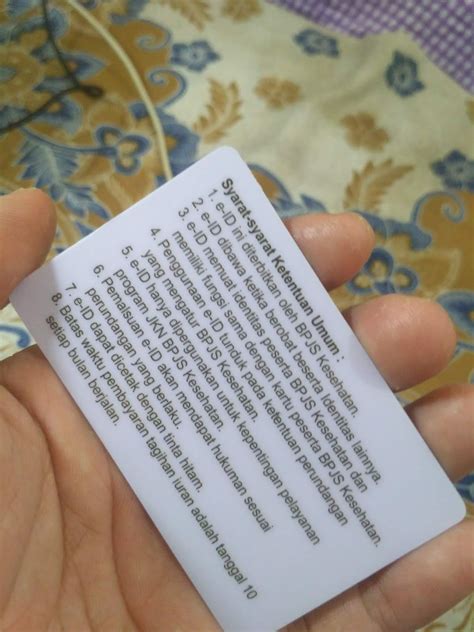 Syarat-syarat Ketentuan Umum :
1. e-ID ini diterbitkan oleh BPJS Kesehatan.
2. e-ID dibawa ketika berobat beserta identitas lainnya.
3. e-ID memuat identitas peserta BPJS Kesehatan dan
memiliki fungsi sama dengan kartu peserta BPJS Kesehatan.
4. Penggunaan e-ID tunduk pada ketentuan perundangan
yang mengatur BPJS Kesehatan.
5. e-ID hanya dipergunakan untuk kepentingan pelayanan
program JKN BPJS Kesehatan.
6. Pemalsuan e-ID akan mendapat hukuman sesuai
perundangan yang berlaku.
7. e-ID dapat dicetak dengan tinta hitam.
8. Batas waktu pembayaran tagihan iuran adalah tanggal 10
setiap bulan berjalan.